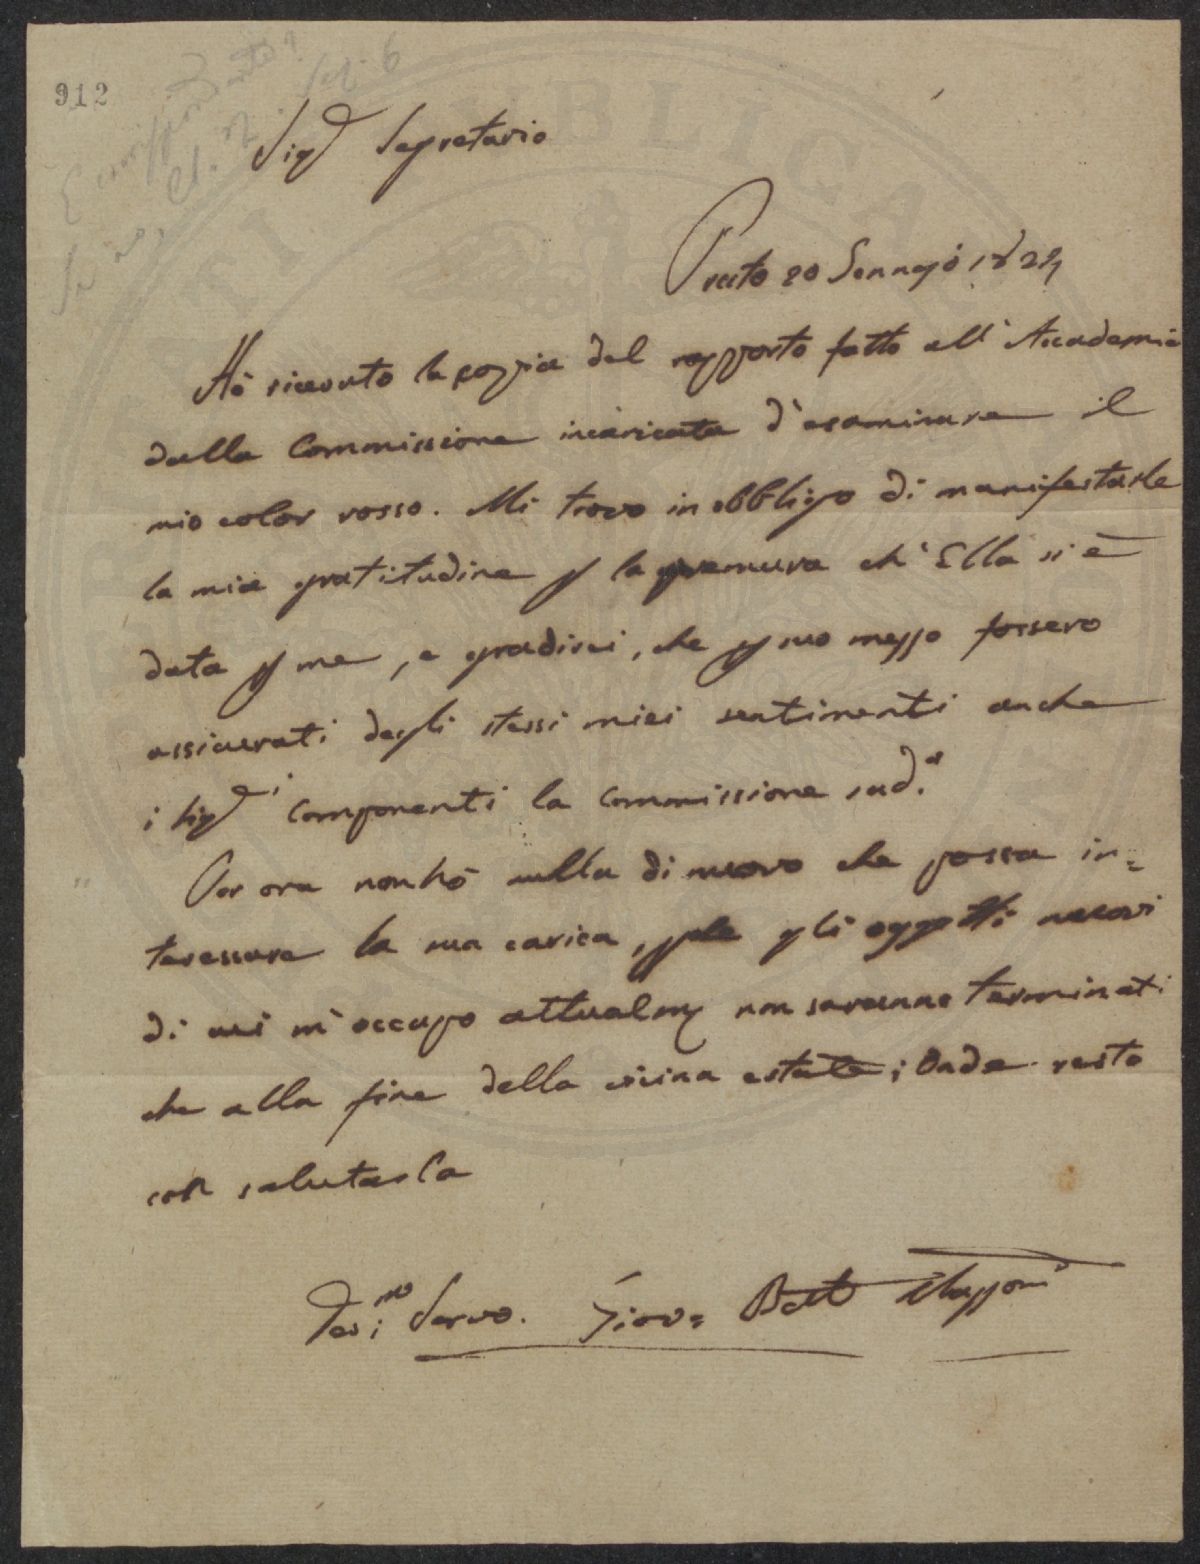 912
Sig.r Segretario
Prato 20 Gennajo 1824
Hò ricevuto la coppia del rapporto fatto all' Accademia
dalla Commissione incaricata d'esaminare il
mio color rosso. Mi trovo in obbligo di manifestarle
la mia gratitudine p la premura ch' Ella si è
data p me, e gradirei, che p suo mezzo fossero
assicurati degli stessi miei sentimenti anche
i Sigri componenti la Commissione sud.a
Per ora non hò nulla di nuovo che possa in=
teressare la sua carica, gli oggetti nuovi
di cui m' occupo attualm non saranno terminati
che alla fine della vicina estate; Onde resto
con salutarla
Dev.mo Servo. Giov: Batt